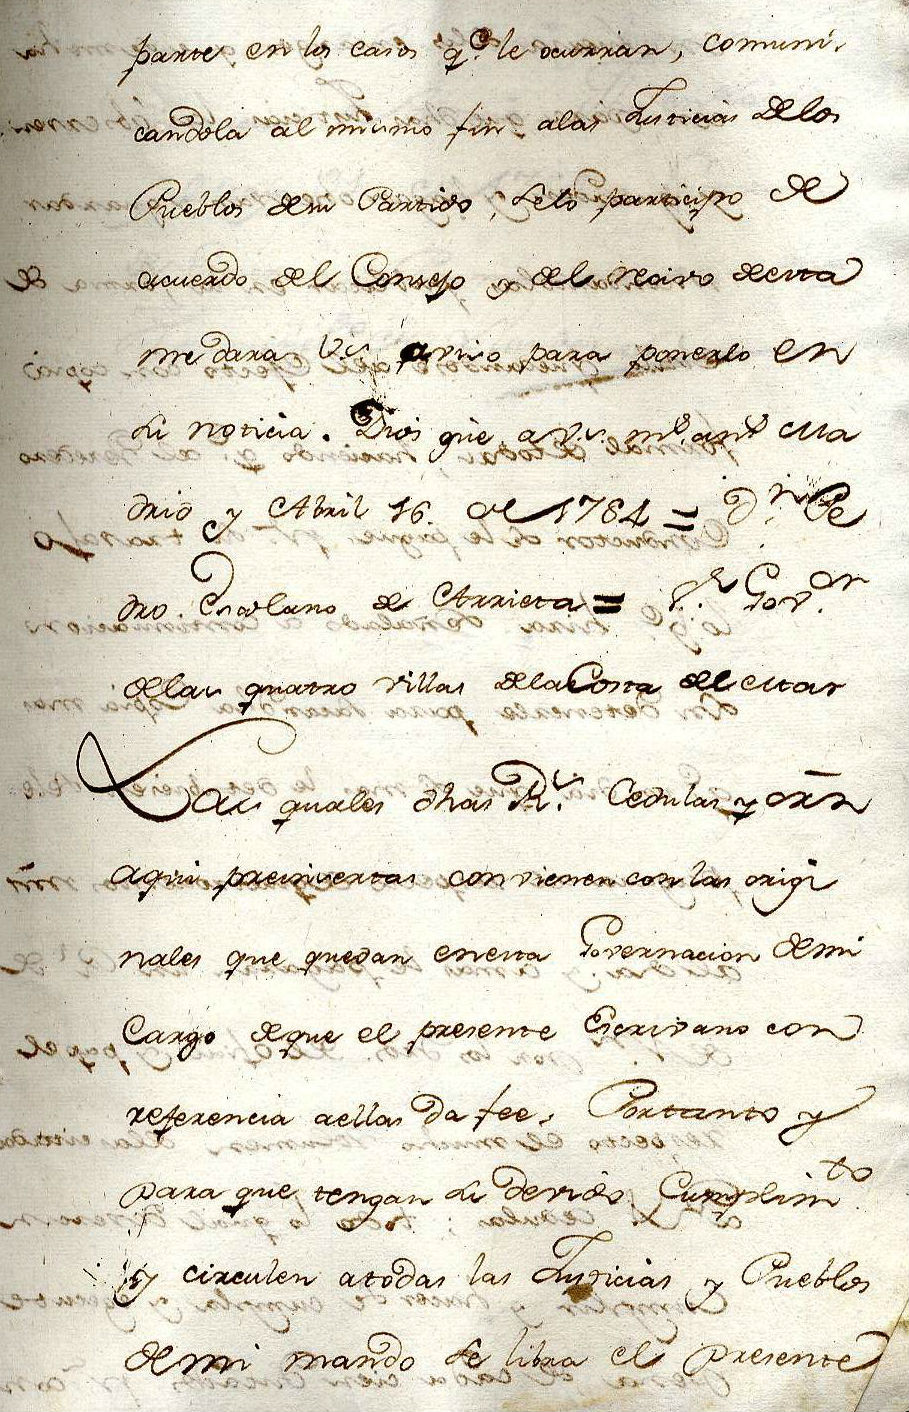 parte en los casos q.e le ocurrian, comuni-
candola al mismo fin alas Justicias delos
Pueblos desu Partido. Selo participo de
acuerdo del Consejo y del recivo de esta
me dara V.S. aviso para ponerlo en
su noticia. Dios gûe a V.S. m.s an.s Ma
drid y Abril 16. de 1784 = D.n Pe
dro Escolano de Arrieta = S.r Gov.or
delas quatro villas dela Costa de la mar
Las quales dhas R.s Cedulas y orn
aqui preinsertas convienen con las origi
nales que quedan en esta Governacion de mi
Cargo de que el presente Escrivano con
referencia aellas da fee. Portanto y
para que tengan su devido Cumplim.to
y circulen atodas las Justicias y Pueblos
de mi mando se libra el presente